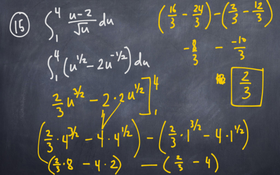 (15) ∫₁⁴ (u-2)/√u du
∫₁⁴ (u^{1/2} - 2u^{-1/2}) du
2/3 u^{3/2} - 2·2u^{1/2} ]₁⁴
(2/3 · 4^{3/2} - 4·4^{1/2}) - (2/3 · 1^{3/2} - 4·1^{1/2})
(2/3 · 8 - 4·2) - (2/3 - 4)
(16/3 - 24/3) - (2/3 - 12/3)
-8/3 - -10/3
2/3